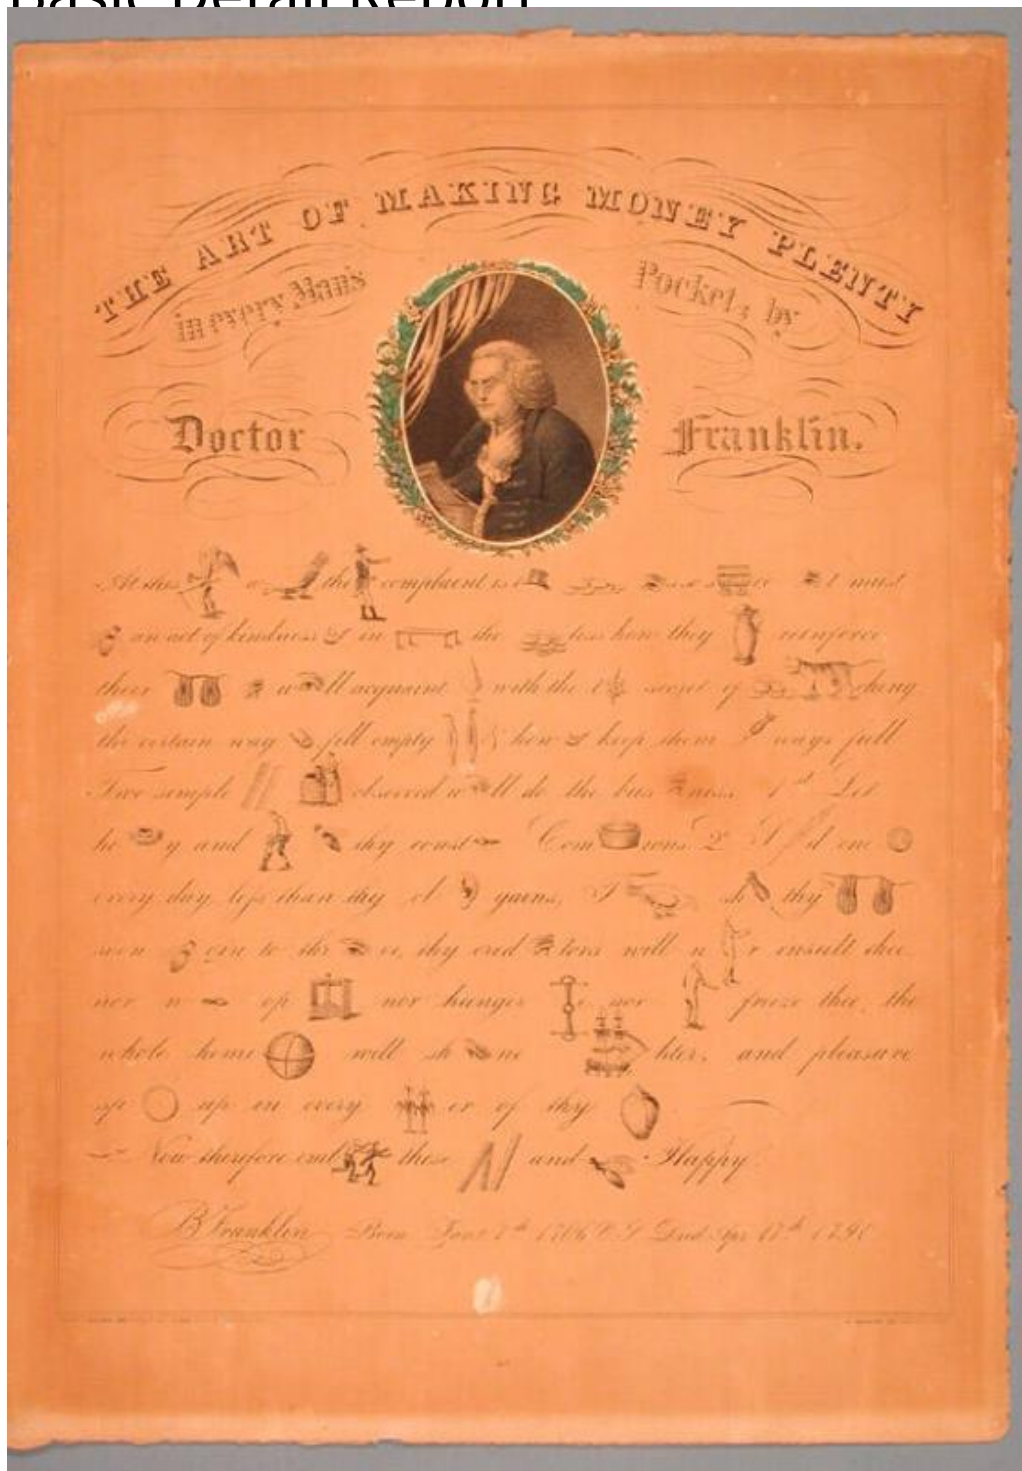 Basic Detail Report
THE ART OF MAKING MONEY PLENTY
in every Man's Pocket; by
Doctor Franklin.
At this a the complaint is t must
an act of kindness in the less how they reinforce
their w ll acquaint with the t secret of ching
the certain way fill empty & how keep them ways full
Two simple observed w ll do the bus ness. 1st Let
he y and thy const Com ions 2 S d one
every day less than thy cl gains, T sh thy
soon gin to thr ve, thy cred tors will n r insult thee
nor w op nor hunger e nor freeze thee, the
whole hemi will sh ne hter, and pleasure
sp up in every er of thy
Now therefore emb these and Happy.
B Franklin Born Jany 1706 O S Died Apr 17th 1790